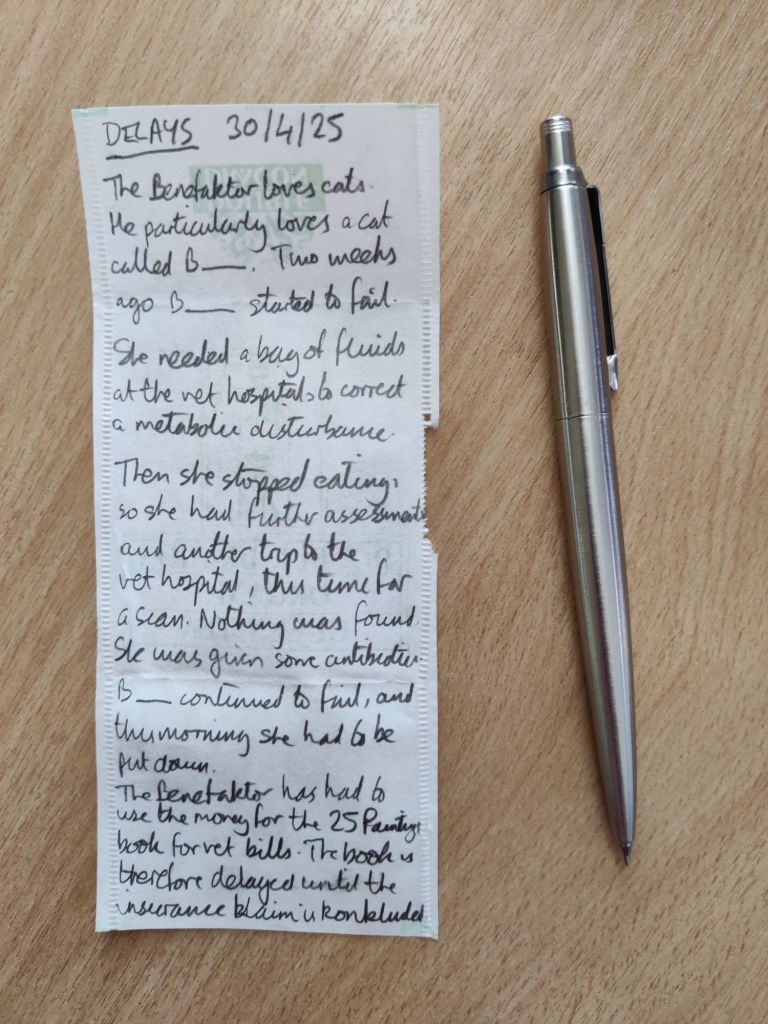 DELAYS 30/4/25
The Benefaktor loves cats.
He particularly loves a cat
called B___. Two weeks
ago B___ started to fail.
She needed a bag of fluids
at the vet hospital, to correct
a metabolic disturbance.
Then she stopped eating,
so she had further assessments
and another trip to the
vet hospital, this time for
a scan. Nothing was found.
She was given some antibiotics.
B___ continued to fail, and
this morning she had to be
put down.
The Benefaktor has had to
use the money for the 25 Paintings
book for vet bills. The book is
therefore delayed until the
insurance klaim is konkluded